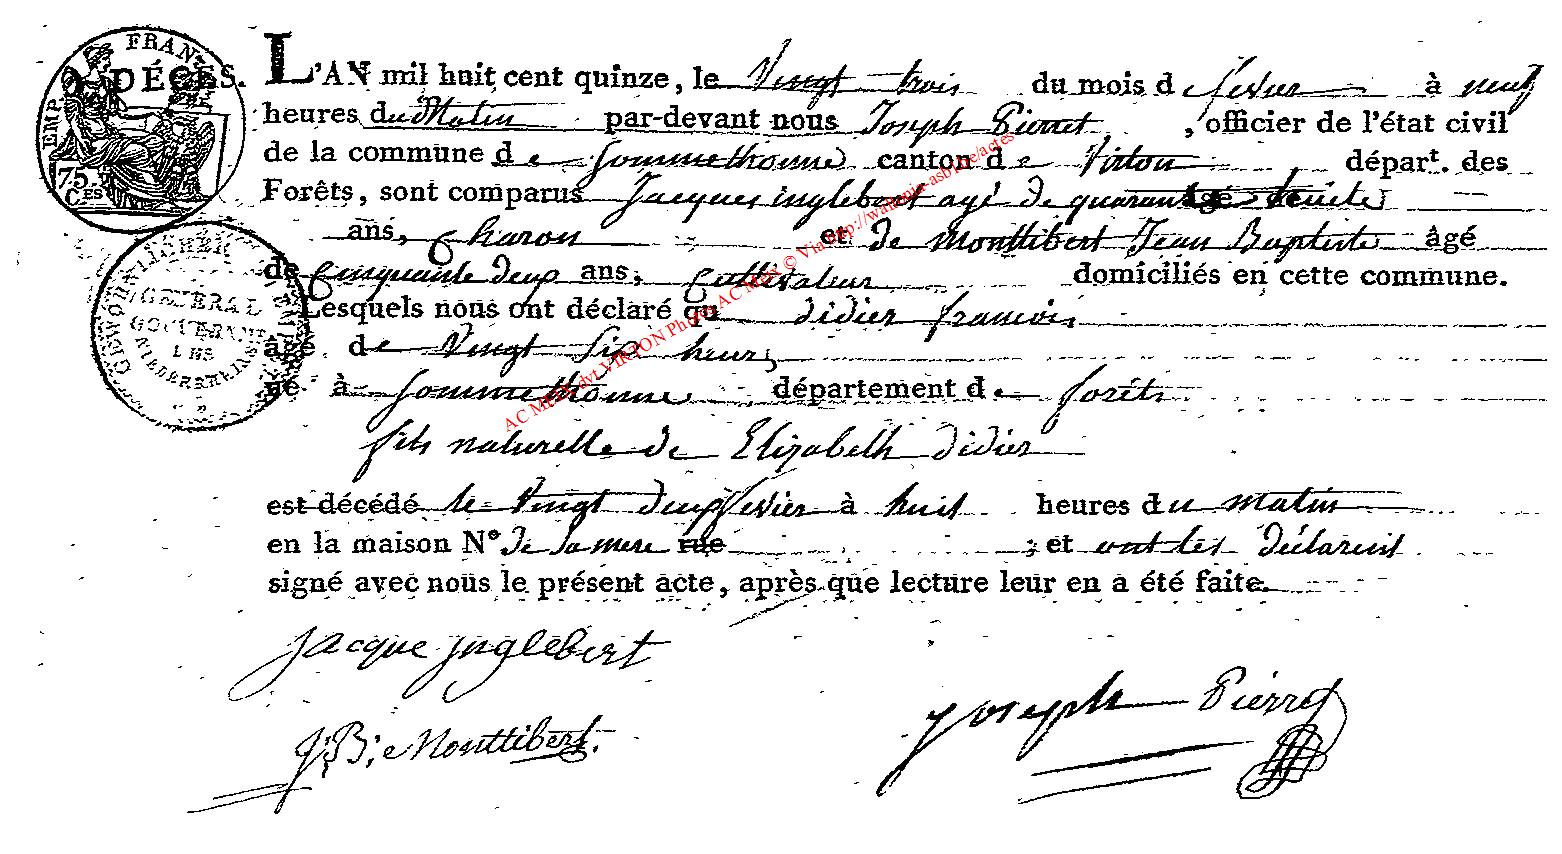 DÉCÈS. L'AN mil huit cent quinze, le Vingt trois du mois de fevier à neuf
heures du Matin par-devant nous Joseph Pierret, officier de l'état civil
de la commune de Sommethonne canton de Virton départ. des
Forêts, sont comparus Jacques inglebert agé de quarante âgé de huite
ans, Charon et de Monttibert Jean Baptiste âgé
de Cinquante deux ans, Cultivateur domiciliés en cette commune.
Lesquels nous ont déclaré que didier francois
âgé de Vingt six heurs
né à Sommethonne département de forêts
fils naturelle de Elizabelh didier
est décédé le Vingt deux fevier à huit heures du matin
en la maison N° de Sa mere rue ; et ont les déclarent
signé avec nous le présent acte, après que lecture leur en a été faite.
Jacque Inglebert
J: B: e Monttibert.
Joseph Pierret
FRAN
EMP
75
CES
GENERAL
GOUVERNEMENT
AC Metz dvt VIRTON Photos AC Metz © Via http://wallonia-asbl.be/actes